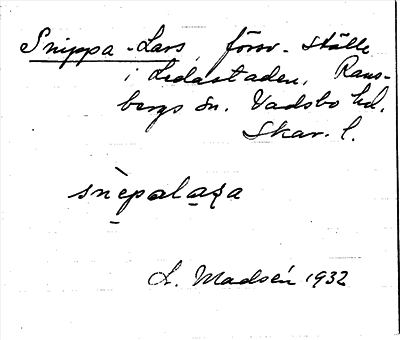 Snippa-Lars, försv. ställe
i Ledastaden, Rans-
bergs sn. Vadsbo hd.
Skar. l.
snèpalaʂa
L. Madsén 1932